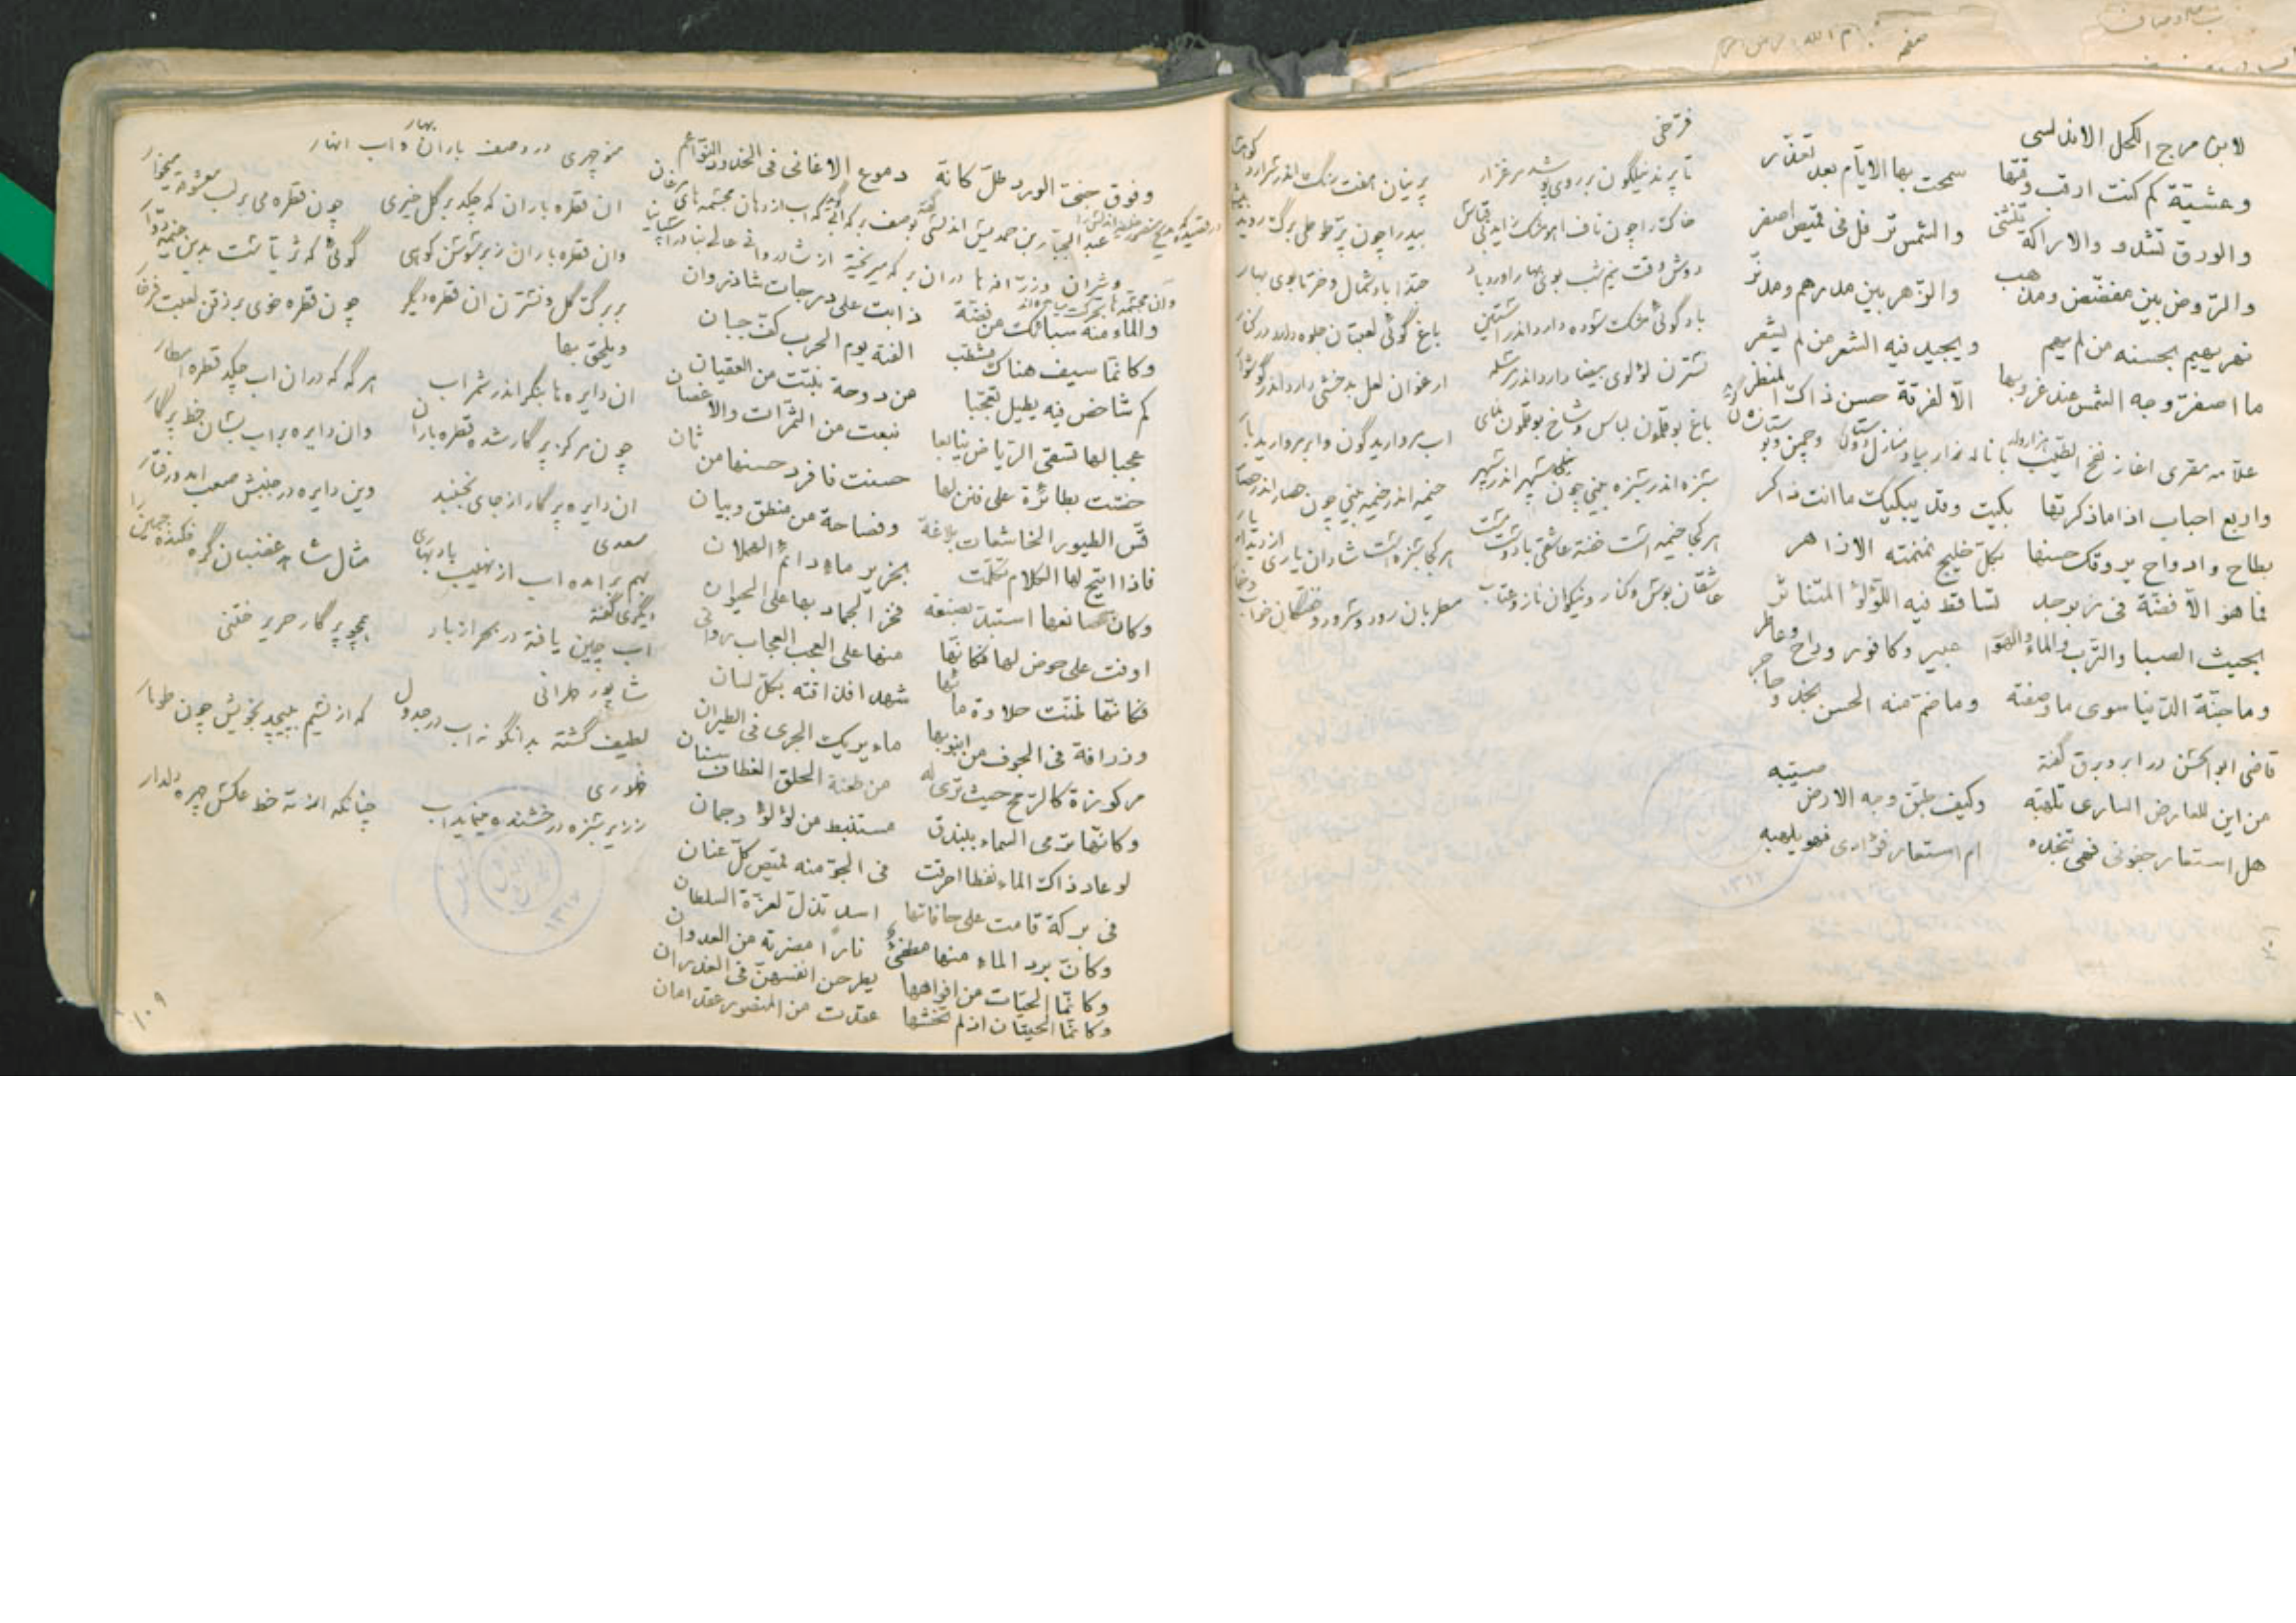 لابن مرج الكحل الاندلسى
وعشيّة كم كنت ارقب وقتها سمحت بها الايّام بعد تعذّر
والورق تشدو والاراكة تنثنى والشمس ترفل فى قميص اصفر
والرّوض بين مفضّض ومذهب والزّهر بين مدرهم ومدنّر
نهر يهيم بحسنه من لم يهم ويجيد فيه الشعر من لم يشعر
ما اصفرّ وجه الشمس عند غروبها الّا لفرقة حسن ذاك المنظر
علّامه مقرى اغاز نفح الطّيب
واربع احباب اذا ما ذكرتها بكيت وقد يبكيك ما انت ذاكر
بطاح وادواح يروقك حسنها بكلّ خليج نمنمته الازاهر
فما هو الّا فضّة فى زبرجد تساقط فيه اللّؤلؤ المتناثر
بحيث الصبا والتّرب والماء والهوا عبير وكافور وراح وعاطر
وما جنّة الدّنيا سوى ما وصفته وما ضمّ منه الحسن نجد وحاجر
قاضى ابو الحسن در ابر و برق گفته
من اين للعارض السارى تلهّبه وكيف طبّق وجه الارض صيّبه
هل استعار جفونى فهى تنجده ام استعار فؤادى فهو يلهبه
فرّخى
تا پرند نیلگون بر روى پوشد مرغزار پرنیان هفت رنگ اندر سر ارد كوهسار
خاك را چون ناف اهو مشك زاید بی قیاس بید را چون پرّ طوطی برگ روید بیشمار
دوش وقت نیم شب بوى بهار اورد باد حبّذا باد شمال و خرّما بوى بهار
باد گوئى مشك سوده دارد اندر استین باغ گوئى لعبتان جلوه دارد در كنار
نسترن لؤلوى بیضا دارد اندر مرسله ارغوان لعل بدخشى دارد اندر گوشوار
باغ بوقلمون لباس و شاخ بوقلمون نماى اب مروارید گون و ابر مروارید بار
سبزه اندر سبزه بینى چون سپهر اندر سپهر خیمه اندر خیمه بینى چون حصار اندر حصار
هر كجا خیمه است خفته عاشقى با دوست مست هر كجا سبزه است شادان یارى از دیدار یار
عاشقان بوس و كنار و نیكوان ناز و عتاب مطربان رود و سرود و خفتگان خواب و خمار
وفوق جنىّ الورد طلّ كانّه دموع الاغانى فى الخدود النّواعم
والماء منه سبائك من فضّة ذابت على درجات شاذروان
وكانّما سيف هناك مشطّب القته يوم الحرب كفّ جبان
كم شاخص فيه يطيل تعجّبا من دوحة نبتت من العقيان
عجبا لها تسقى الرّياض ينابعا نبعت من الثّمرات والاغصان
خصّت بطائرة على فنن لها حسنت فافرد حسنها من ثان
قسّ الطيور الخاشعات بلاغة وفصاحة من منطق وبيان
فاذا اتيح لها الكلام تكلّمت بخرير ماء دائم الهملان
وكانّ صانعها استبدّ بصنعة فخر الجماد بها على الحيوان
اوفت على حوض لها فكانّها منها على العجب العجاب روانى
فكانّها ظنّت حلاوة مائها شهدا فذاقته بكلّ لسان
وزرافة فى الجوف من انبوبها ماء يريك الجرى فى الطيران
مركوزة كالرّمح حيث ترى له من طعنة الحلق انعطاف سنان
وكانّها ترمى السماء ببندق مستنبط من لؤلؤ وجمان
لو عاد ذاك الماء نفطا احرقت فى الجوّ منه قميص كلّ عنان
فى بركة قامت على حافاتها اسد تذلّ لعزّة السلطان
وكانّ برد الماء منها مطفئ نارًا مضرّمة من العدوان
وكانّما الحيّات من افواهها يطرحن انفسهنّ فى الغدران
وكانّما الحيتان اذ لم تخشها عقدت من المنصور عقد امان
منوچهرى در وصف باران بهار و اب انهار
ان قطره باران كه چكد بر گل خیرى چون قطره مى بر لب معشوقه میخوار
وان قطره باران ز بر سوسن كوهى گوئى كه ثریّاست بدین خیمه دوّار
بر برگ گل و نسترن ان قطره دیگر چون قطره خوى بر ذقن لعبت فرخار
ویلحق بها
ان دایره ها بنگر اندر شمر اب هر گه كه دران اب چكد قطره امطار
چون مركز پرگار شده قطره باران وان دایره بر اب بسان خط پرگار
ان دایره پرگار از جاى نجنبد وین دایره در جنبش صعب امد و رفتار
سعدى
بهم بر امده اب از نهیب باد بهارى مثال شاهد غضبان گره فكنده جبین را
دیگرى گفته
اب چین یافته در بحر از باد همچو پرگار حریر ختنى
شاپور طهرانى
لطیف گشته بدانگونه اب در جدول كه از نسیم بپیچد بخویش چون طومار
ز زیر سبزه درخشنده مینماید اب چنانكه از ته خط عكس چهره دلدار
۱۰۹